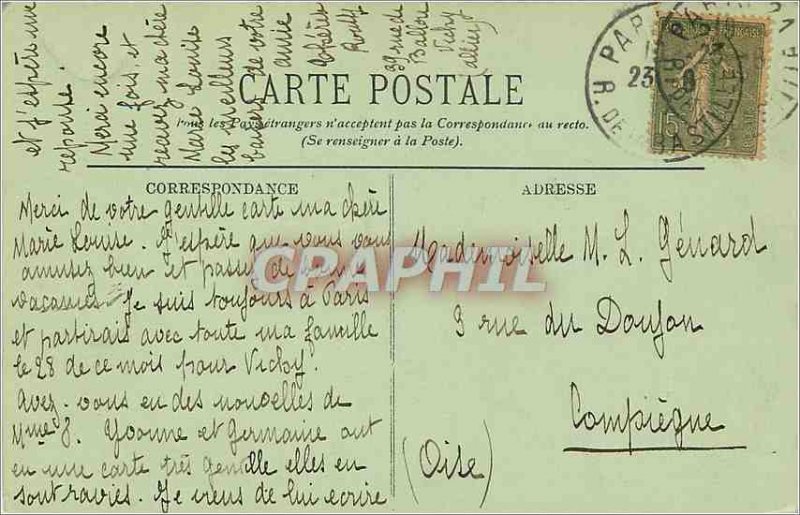 Merci de votre gentille carte ma chère
Marie Louise. J'espère que vous vous
amusez bien et passez de bonnes
vacances. Je suis toujours à Paris
et partirais avec toute ma famille
le 28 de ce mois pour Vichy.
Avez-vous eu des nouvelles de
Mme S. Yvonne et Germaine ont
eu une carte très gentille elles en
sont ravies. Je viens de lui écrire
et j'espère une
réponse.
Merci encore
une fois et
recevez ma chère
Marie Louise
les meilleurs
baisers de votre
amie
39 rue de
Ballore
Vichy
Allier
CARTE POSTALE
Tous les Pays étrangers n'acceptent pas la Correspondance au recto.
(Se renseigner à la Poste).
CORRESPONDANCE
ADRESSE
Mademoiselle M. L. Génard
3 rue du Donjon
Compiègne
(Oise)
CPAPHIL
PARIS
23
R. DE LA BASTILLE
15